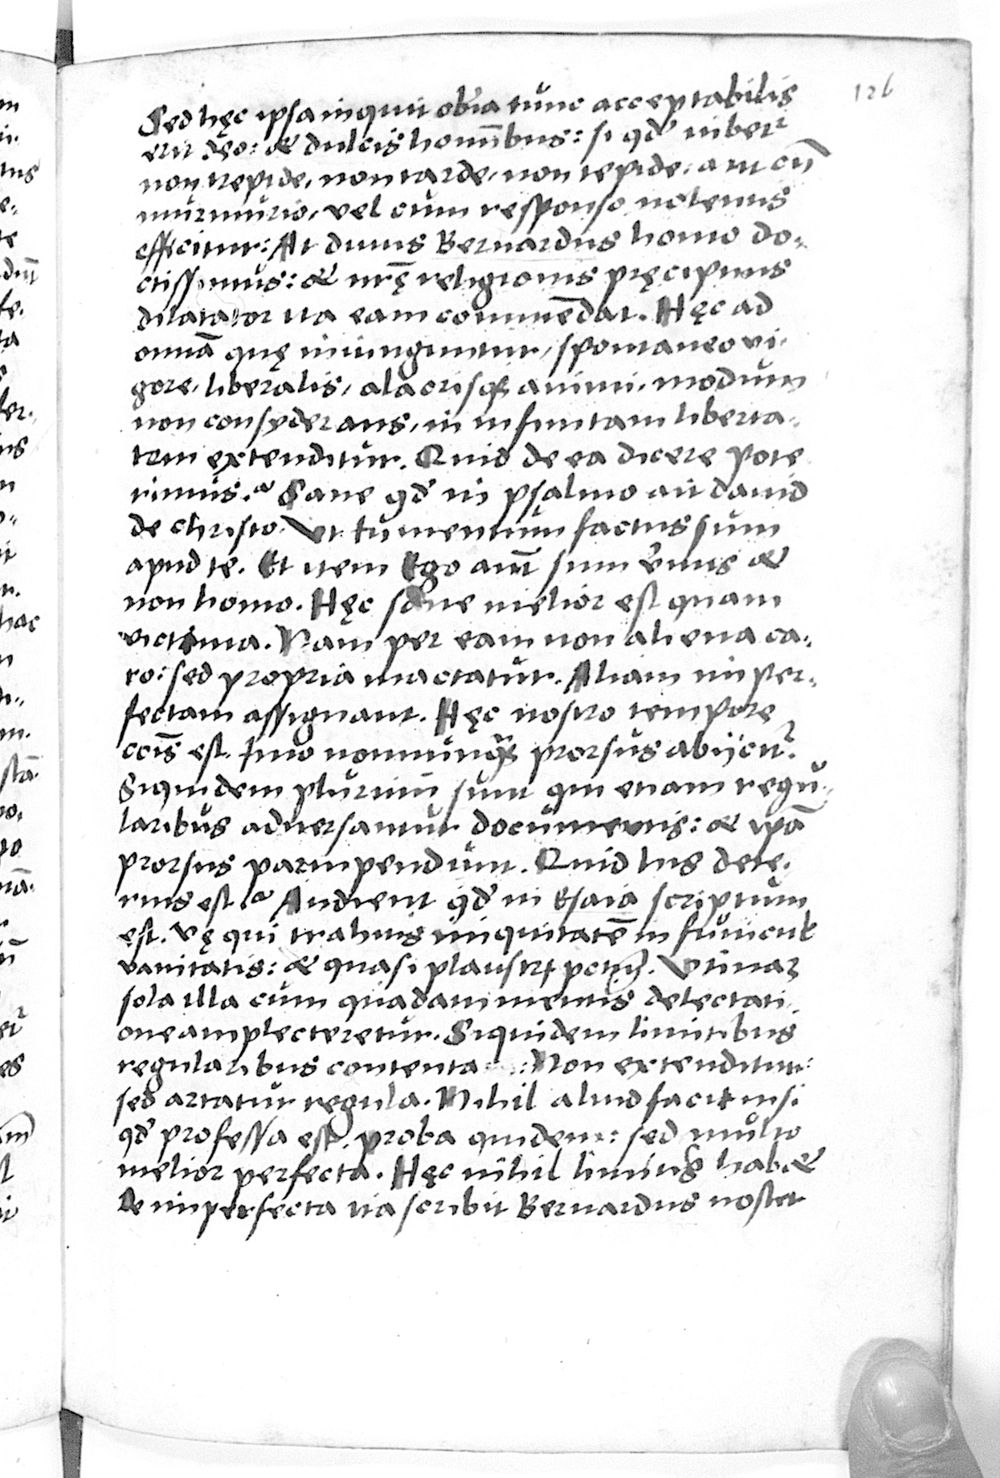 126
Sed hęc ipsa inquit ob̅ia tunc acceptabilis
erit deo: & dulcis hominibus: si qd̕ iubetʳ
non trepide, non tarde, non tepide, aut cū
murmurio, vel cum responso nolentis
efficitur: At diuus Bernardus homo do-
ctissimus: & nr̅ę religionis pręcipuus
dilatator ita eam commēdat. Hęc ad
omīa quę iniunguntur, spontaneo vi-
gore, liberalis, alacrisq; animi, modum
non consyderans, in infinitam liberta-
tem extenditur. Quid de ea dicere pote
rimus? Sane qd̕ in psalmo ait dauid
de christo. Vt iumentum factus sum
apud te. Et item Ego aut̄ sum v̕mis &
non homo. Hęc sane melior est quam
victima. Nam per eam non aliena ca-
ro: sed propria mactatur. Aliam imper-
fectam assignant. Hęc nostro tempore
cōis est. Imo nonnunq̄ prorsus abijcitʳ.
Siquidem plurimi sunt qui etiam regu-
laribus aduersantur documentis: & ipā
prorsus paruipendunt. Quid his dete-
rius est? Audient qd̕ in Esaia scriptum
est. Vę qui trahitis iniquitatē in funiculis
vanitatis: & quasi plaustrꝝ pctm̄. Vtinaʒ
sola illa cum quadam mentis delectati-
one amplecteretur. Siquidem limitibus
regularibus contenta : Non extenditur:
sed artatur regula. Nihil aliud facit nisi
qd̕ professa est. proba quidem: sed multo
melior perfecta. Hęc nihil limitis hab&
de imperfecta ita scribit Bernardus noster